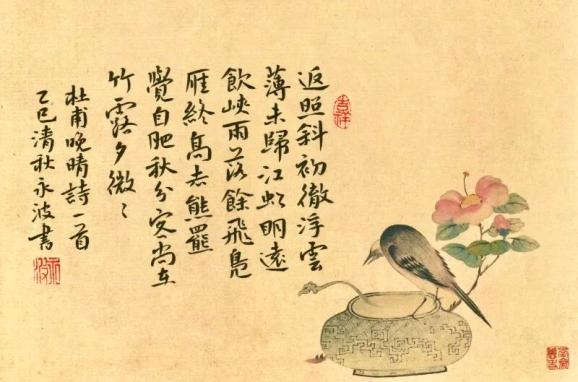 返照斜初徹浮雲
薄未歸江虹明遠
飲峽雨落餘飛鳧
雁終高去熊羆
覺自肥秋分客尚在
竹露夕微〻
杜甫晚晴詩一首
乙巳清秋永波書
吉祥
永波